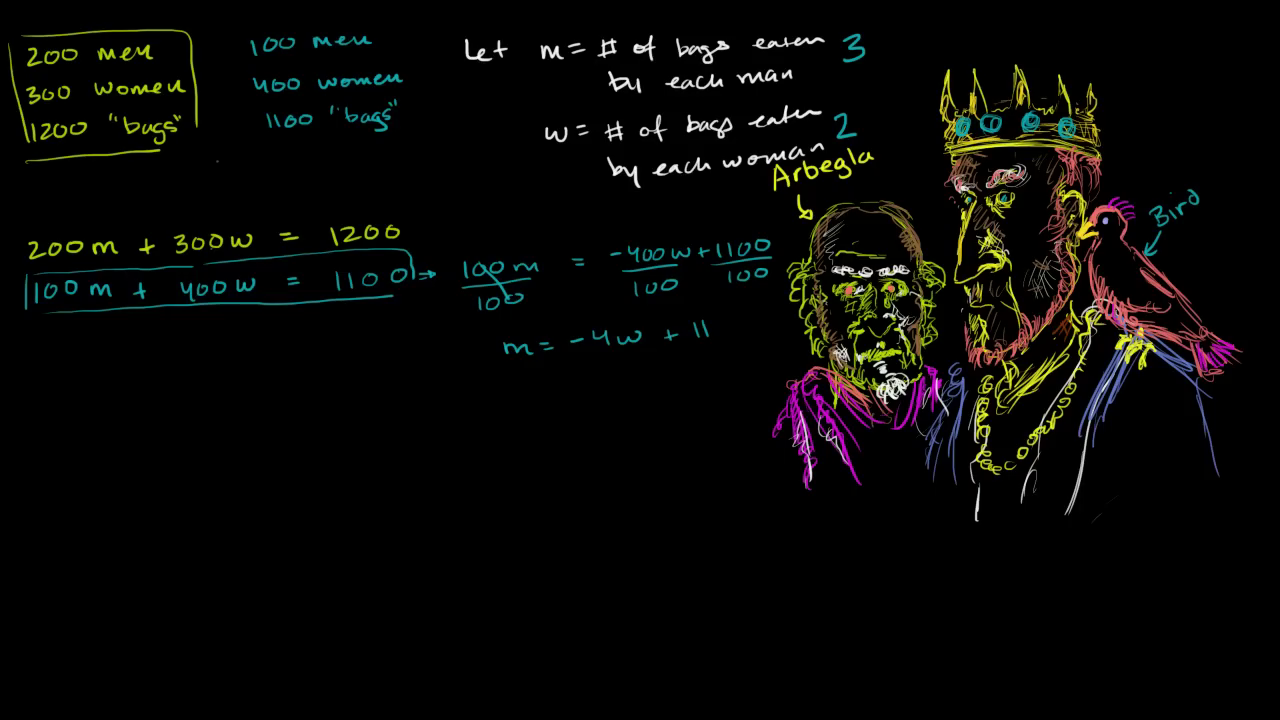 200 men
300 women
1200 "bags"
100 men
400 women
1100 "bags"
Let m = # of bags eaten 3
by each man
w = # of bags eaten 2
by each woman
Arbegla
Bird
200m + 300w = 1200
100m + 400w = 1100 → 100m/100 = -400w/100 + 1100/100
m = -4w + 11